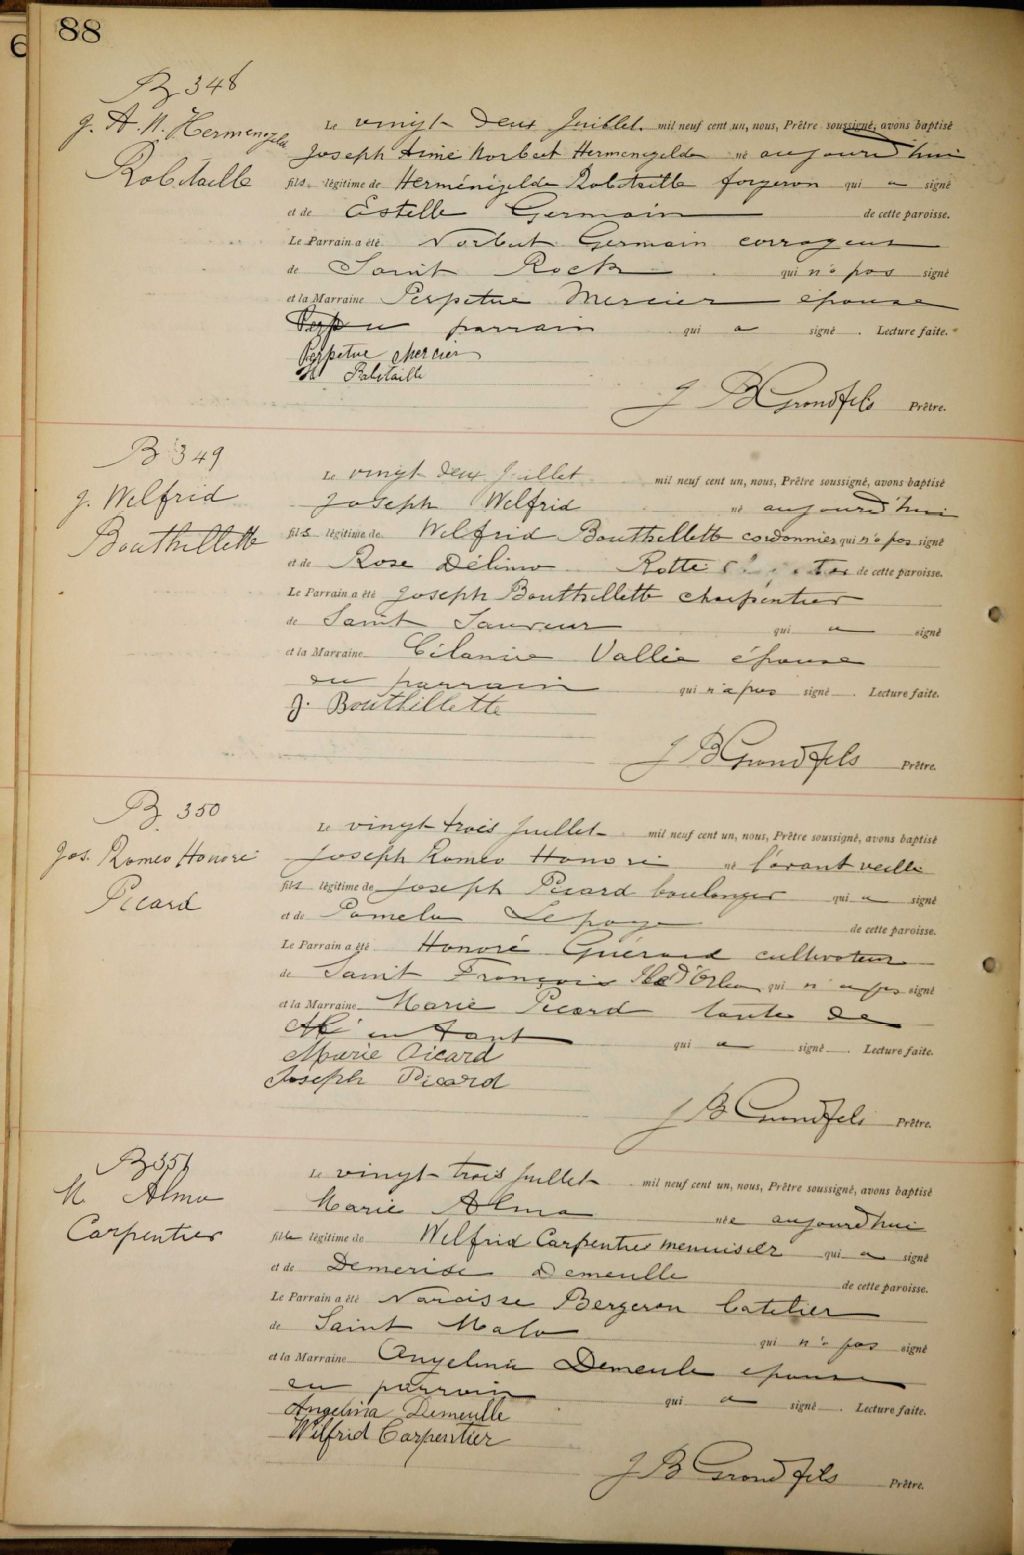 88
B 348
J. A. N. Hermenegilde
Robitaille
Le vingt deux Juillet mil neuf cent un, nous, Prêtre soussigné, avons baptisé
Joseph Aimé Norbert Hermenegilde né aujourd'hui
fils légitime de Herménégilde Robitaille forgeron qui a signé
et de Estelle Germain de cette paroisse.
Le Parrain a été Norbert Germain corroyeur
de Saint Roch qui n'a pas signé
et la Marraine Perpetue Mercier épouse
du parrain qui a signé. Lecture faite.
Perpetue Mercier
H Robitaille
J B Grondfils Prêtre.
B 349
J. Welfrid
Bouthillette
Le vingt deux Juillet mil neuf cent un, nous, Prêtre soussigné, avons baptisé
Joseph Welfrid né aujourd'hui
fils légitime de Welfrid Bouthillette cordonnier qui n'a pas signé
et de Rose Délima Rotte de cette paroisse.
Le Parrain a été Joseph Bouthillette charpentier
de Saint Sauveur qui a signé
et la Marraine Célanire Vallée épouse
du parrain qui n'a pas signé. Lecture faite.
J. Bouthillette
J B Grondfils Prêtre.
B. 350
Jos. Romeo Honoré
Picard
Le vingt trois Juillet mil neuf cent un, nous, Prêtre soussigné, avons baptisé
Joseph Romeo Honoré né l'avant veille
fils légitime de Joseph Picard boulanger qui a signé
et de Pamela Lepage de cette paroisse.
Le Parrain a été Honoré Guérard cultivateur
de Saint François Ile d'Orléans qui n'a pas signé
et la Marraine Marie Picard tante de
l'enfant qui a signé. Lecture faite.
Marie Picard
Joseph Picard
J B Grondfils Prêtre.
B 351
M Alma
Carpentier
Le vingt trois Juillet mil neuf cent un, nous, Prêtre soussigné, avons baptisé
Marie Alma née aujourd'hui
fille légitime de Welfrid Carpentier menuisier qui a signé
et de Demerise Demeulle de cette paroisse.
Le Parrain a été Narcisse Bergeron batelier
de Saint Malo qui n'a pas signé
et la Marraine Angelina Demeule epouse
du parrain qui a signé. Lecture faite.
Angelina Demeulle
Wilfrid Carpentier
J B Grondfils Prêtre.